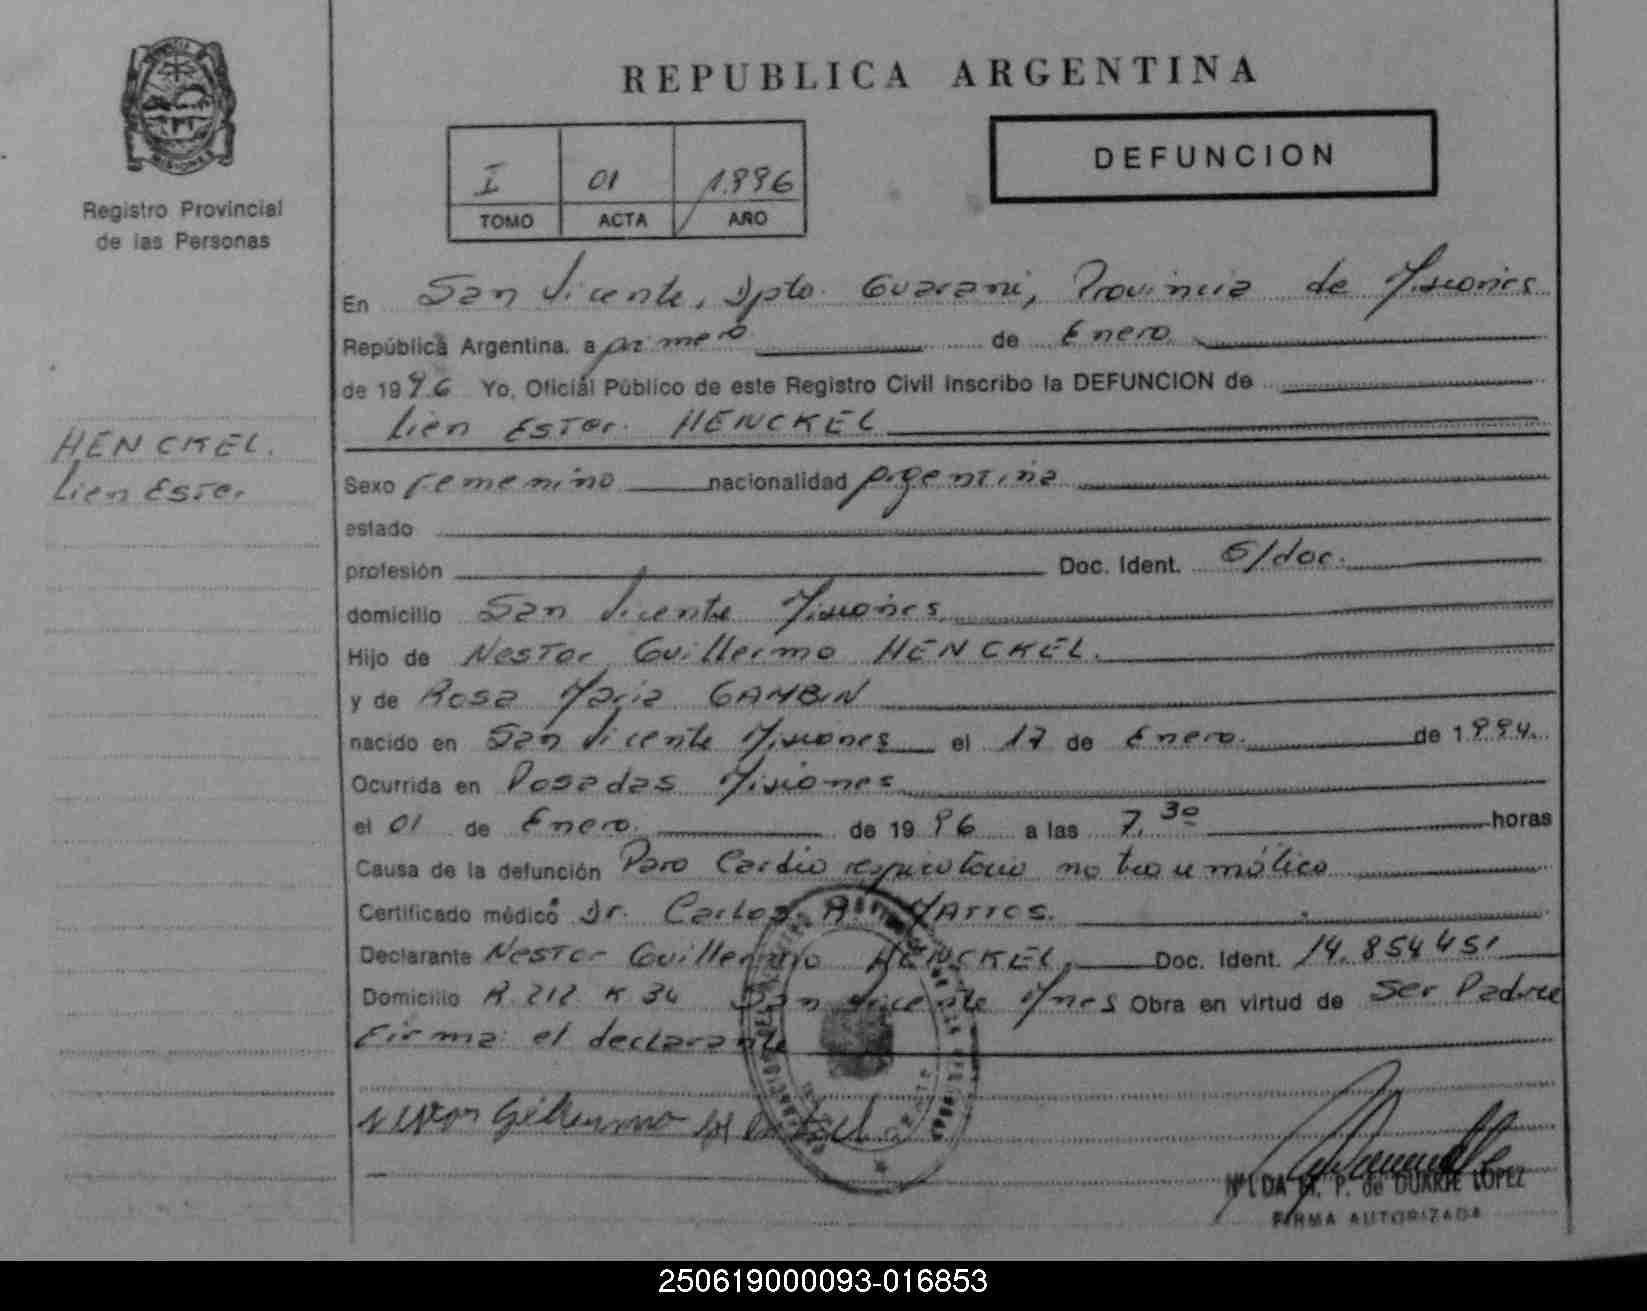 REPUBLICA ARGENTINA
MISIONES
Registro Provincial
de las Personas
I 01 1.996
TOMO ACTA AÑO
DEFUNCION
En San Vicente, Dpto. Guarani, Provincia de Misiones
República Argentina, a primero de Enero
de 1996 Yo, Oficial Público de este Registro Civil inscribo la DEFUNCION de
Lien Ester HENCKEL
HENCKEL.
Lien Ester
Sexo Femenino nacionalidad Argentina
estado
profesión Doc. Ident. S/doc.
domicilio San Vicente Misiones
Hijo de Nestor Guillermo HENCKEL.
y de Rosa Maria GAMBIN
nacido en San Vicente Misiones el 17 de Enero. de 1994.
Ocurrida en Posadas Misiones
el 01 de Enero. de 1996 a las 7,30 horas
Causa de la defunción Paro Cardio respiratorio no traumático
Certificado médico Dr. Carlos A.
Declarante Nestor Guillermo HENCKEL, Doc. Ident. 14.854451
Domicilio R. 212 K 34 San Vicente Mnes Obra en virtud de Ser Padre
Firma: el declarante
Nestor Guillermo Henckel
M. P. de DUARTE LOPEZ
FIRMA AUTORIZADA
250619000093-016853